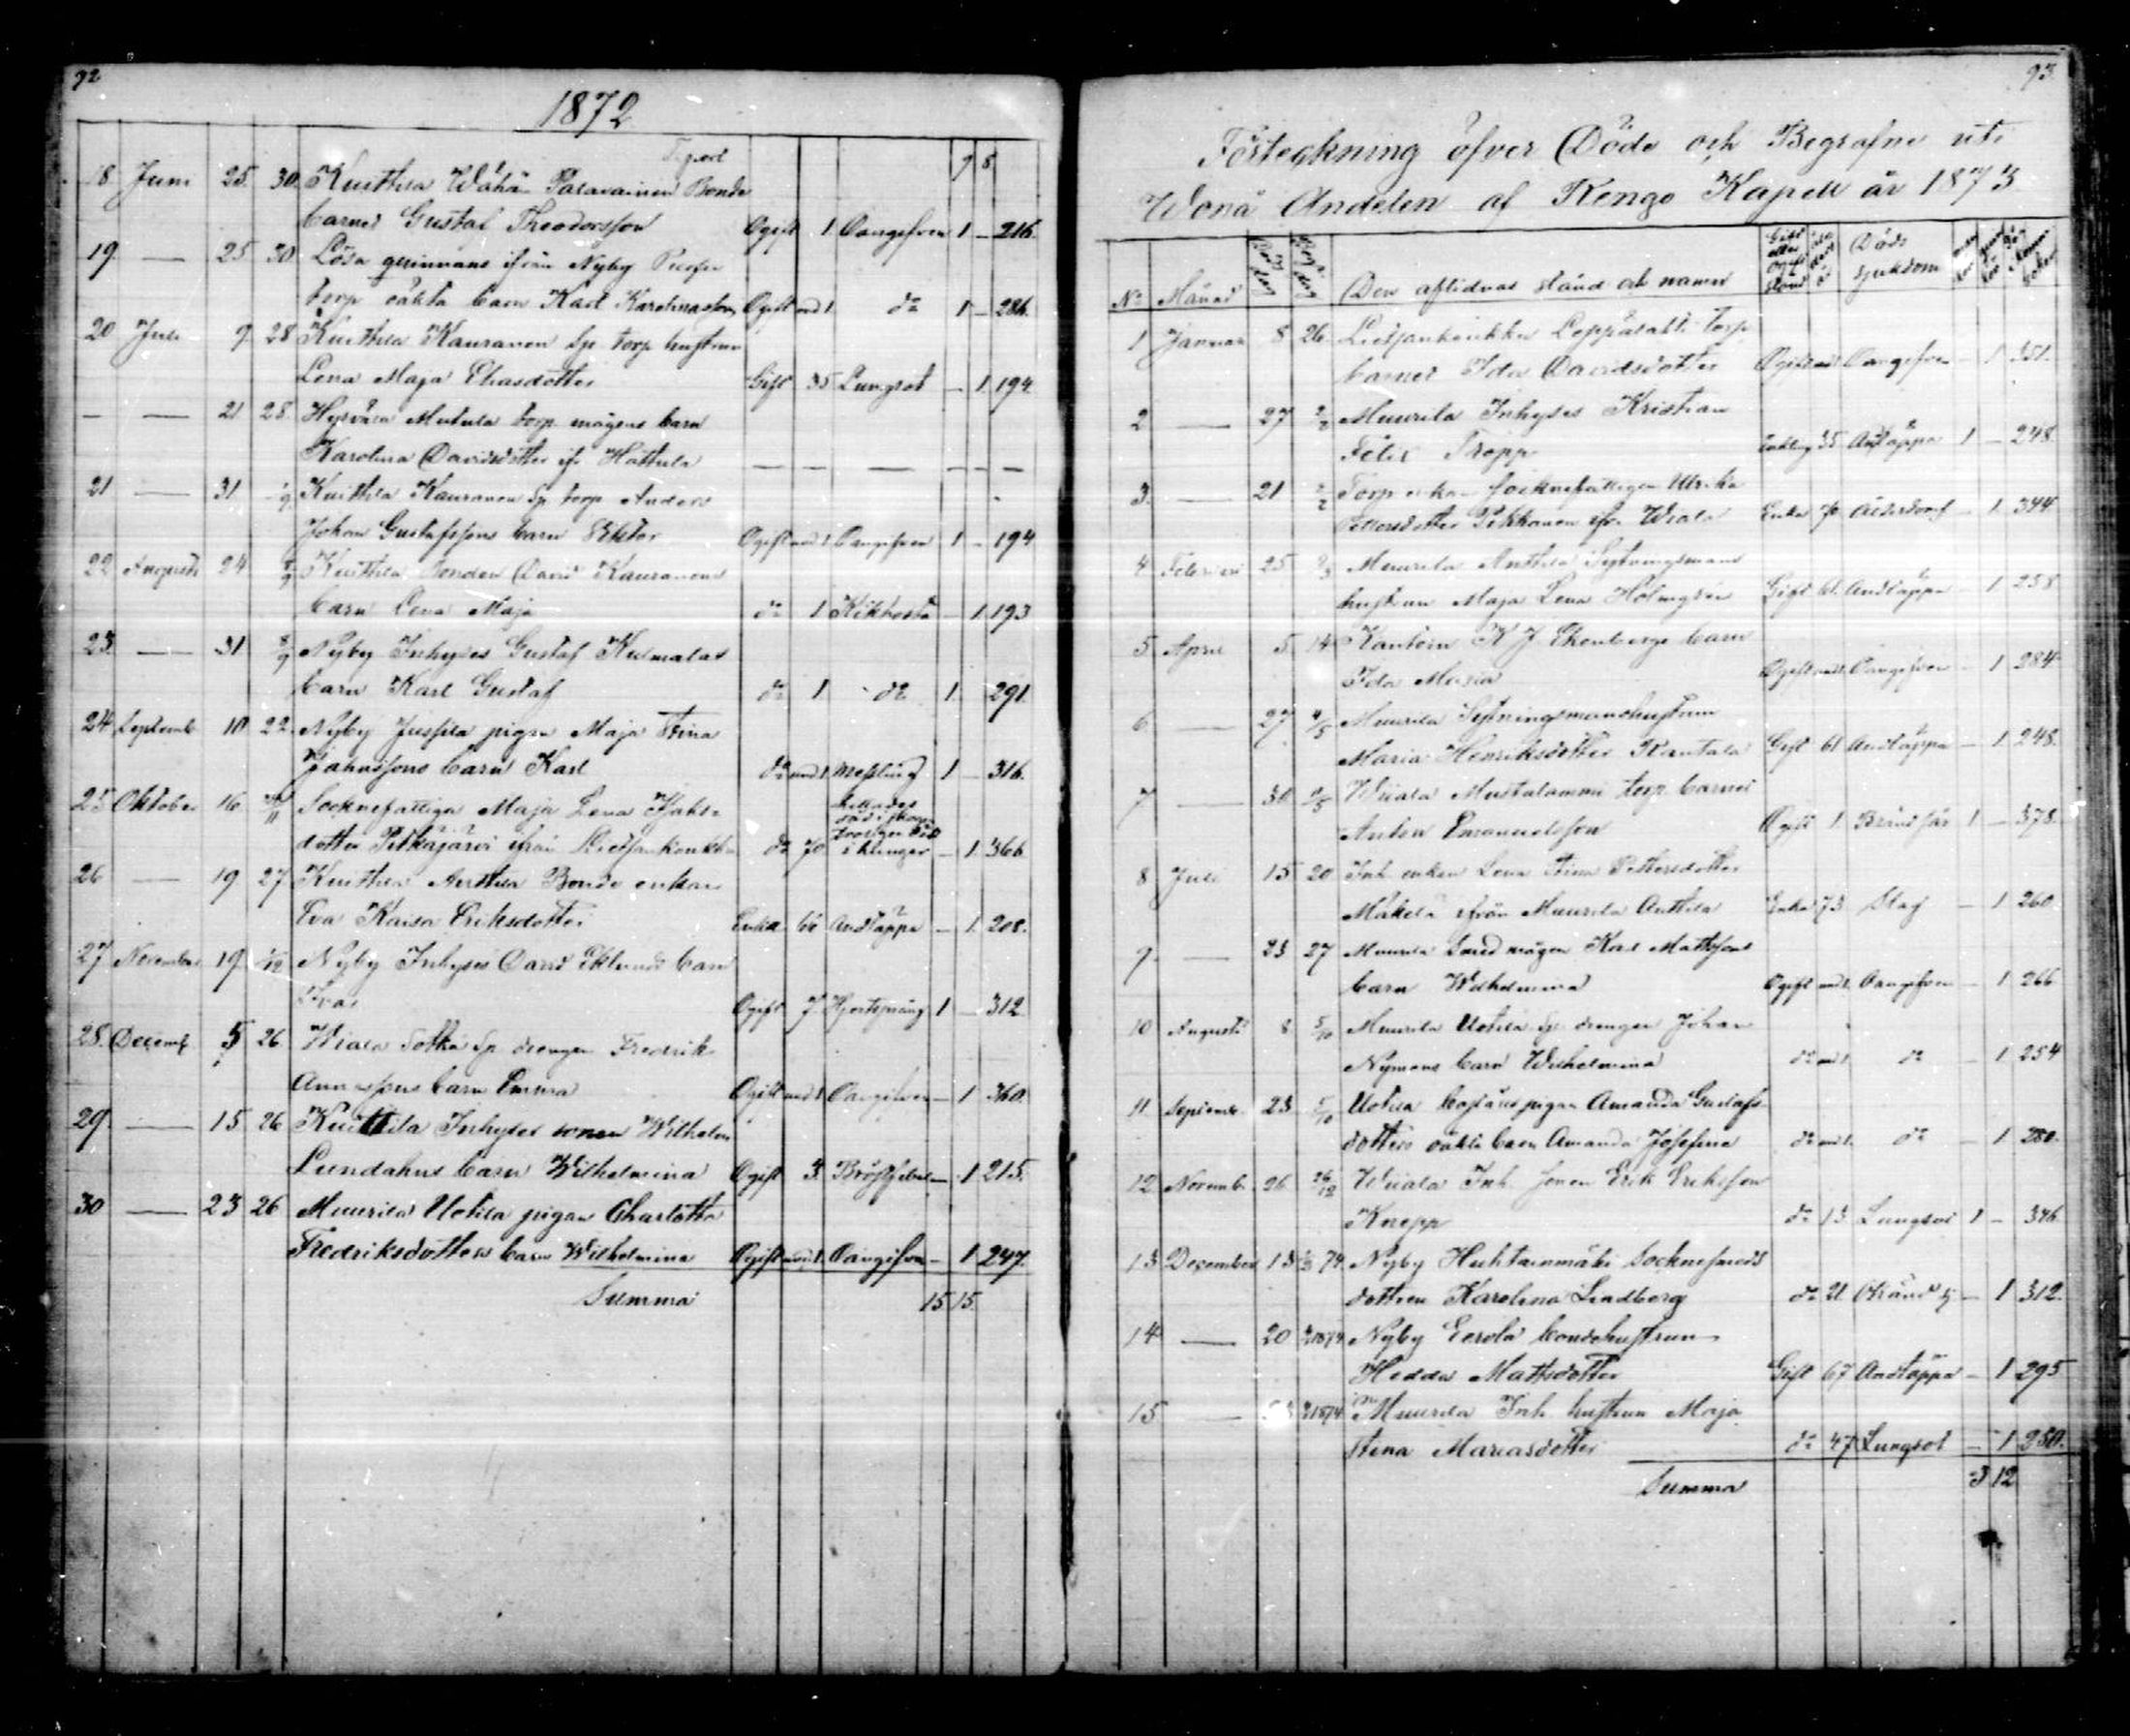 92
1872
18 Juni 25. 30. Kuittila Wähä Palavainen Bonde
barnet Gustaf Theodorsson Ogift 1 Oangifven 1 – 216.
19 — 25 30 Lösa qvinnans ifrån Nyby
torp oäkta barn Karl Karolinasson Ogift und 1 do 1 – 286.
20 Juli 9. 28 Kuittila Kauranen Sp torp hustrun
Lena Maja Eliasdotter Gift 35 Lungsot – 1. 194.
— — 21 28. torp mågens barn
Karolina Davidsdotter ifr Hattula — — — — — —
21 — 31 Kuittila Kauranen Sp torp Anders
Johan Gustafssons barn Viktor Ogift und 1 Oangifven 1 – 194
22 Augusti 24 Kuittila bonden David Kauranens
barn Lena Maja do 1 Kikhosta – 1. 193
23. — 31 8/9 Nyby Inhyses Gustaf Kulmalas
barn Karl Gustaf do 1 do 1. 291.
24 Septemb 10 22. Nyby Jussila pigan Maja Stina
Johanssons barn Karl do und 1. Messling 1 – 316.
25 Oktober 16. Socknefattiga Maja Lena Isaks-
dotter Pitkäjärvi ifrån Lietsankonkka do 70 hittades död i skogen – 1. 366
26 — 19 27 Kuittila Anttila Bonde enkan
Eva Kaisa Eriksdotter Enka 66 Andtäppa – 1. 208.
27 November 19. 1/12 Nyby Inhyses David Eklunds barn
Ivar Ogift 7 Hjertsprång 1 – 312.
28. Decemb 5 26 Wiala Sotka Sp drengen Fredrik
Annassons barn Emma Ogift und 1 Oangifven – 1 360.
29. — 15 26 Kuittila Inhyses sonen Wilhelm
Lundahns barn Wilhelmina Ogift 3. Bröstfeber – 1 215.
30 — 23 26 Muurila Uotila pigan Charlotta
Fredriksdotters barn Wilhelmina Ogift und 1. Oangifven – 1 247.
Summa 15 15.
93.
Förteckning öfver Döde och Begrafne uti
Wonå Andelen af Kengo Kapell år 1873
No Månad Död dag Begr. dag Den aflidnas stånd och namn Gift eller Ogift stånd Döds sjukdom
1 Januari 8 26. Lietsankonkka Leppälahti torp.
barnet Ida Davidsdotter Ogift und 1 Oangifven – 1 351.
2 — 27 2/2 Muurila Inhyses Kristian
Felix Tropp Enkling 35 Andtäppa 1 – 248.
3. — 21 2/2 Torp enkan socknefattigen Ulrika
Pettersdotter Pekkanen ifr Wiala Enka 70 Ålderdom – 1. 344
4 Februari 25 2/3 Muurila Anttila Sytningsmans
hustrun Maja Lena Holmgrén Gift 61. Andtäppa – 1 258
5 April 5. 14 Kantorn K J Ekenbergs barn
Ida Maria Ogift und 1. Oangifven – 1 284
6 — 27 4/5 Muurila Sytningsmanshustrun
Maria Henriksdotter Rantala Gift 61 Andtäppa – 1 248.
7 — 30. Wiiala Mustalammi torp barnet
Anton Emanuelsson Ogift 1. Brändsår 1 – 378.
8 Juli 15 20 Inh enkan Lena Stina Pettersdotter
Mäkelä ifrån Muurila Anttila Enka 73 Slag – 1 260
9. — 23 27 Muurila Smed mågen Karl Mattssons
barn Wilhelmina Ogift und 1. Oangifven – 1 266
10 Augusti 8 5/10 Muurila Uotila Sp drengen Johan
Nymans barn Wilhelmina do und 1. do – 1 254
11. Septemb. 23 5/10 Uotila pigan Amanda Gustafs-
dotters oäkta barn Amanda Josefina do und 1. do – 1 280.
12 Novemb. 26. 26/12 Wiiala Inh. sonen Erik Eriksson
Knopp do 13 Lungsot 1 – 346.
13 December 13 74 Nyby Huhtainmäki Socknesmeds
dottren Karolina Lindberg do 21. – 1 312.
14 — 20 1874 Nyby Eerola bondehustrun
Hedda Mattsdotter Gift 67 Andtäppa – 1 295
15 — 1874 Muurila Inh hustrun Maja
Stina Mariasdotter do 47 Lungsot – 1 250.
Summa 3 12